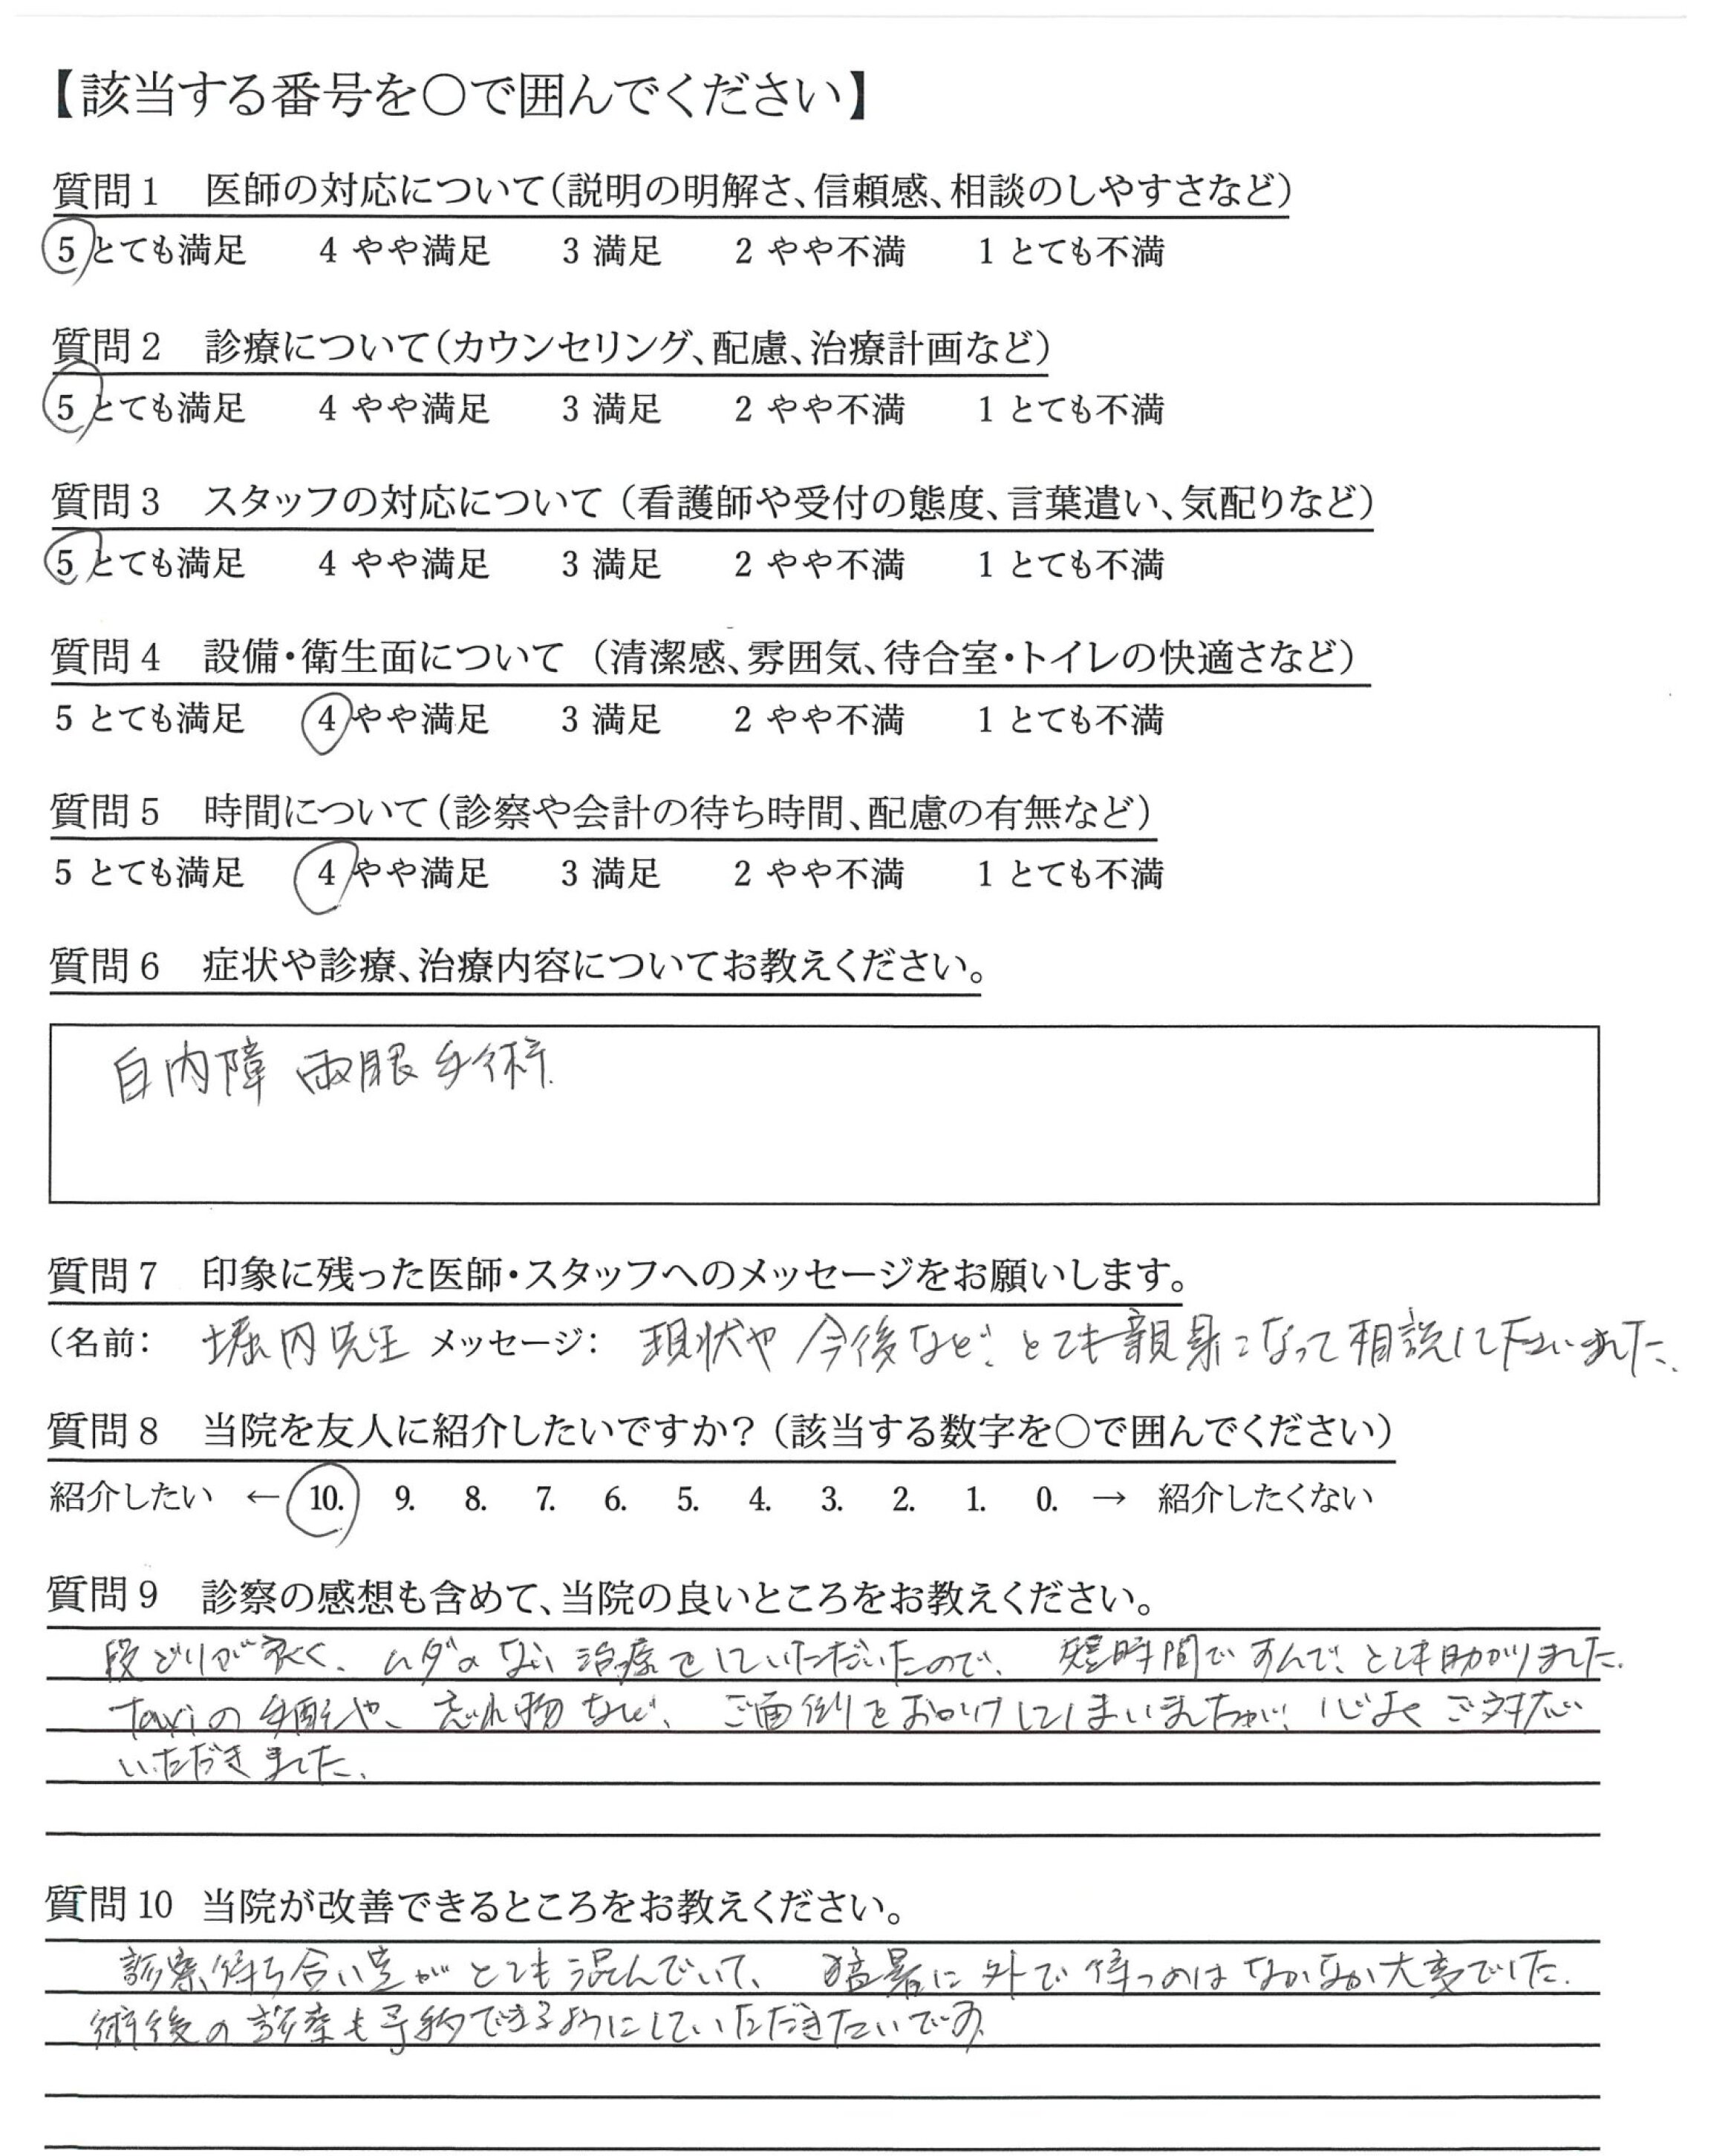 【該当する番号を○で囲んでください】
質問1 医師の対応について(説明の明解さ、信頼感、相談のしやすさなど)
5 とても満足 4 やや満足 3 満足 2 やや不満 1 とても不満
質問2 診療について(カウンセリング、配慮、治療計画など)
5 とても満足 4 やや満足 3 満足 2 やや不満 1 とても不満
質問3 スタッフの対応について (看護師や受付の態度、言葉遣い、気配りなど)
5 とても満足 4 やや満足 3 満足 2 やや不満 1 とても不満
質問4 設備・衛生面について (清潔感、雰囲気、待合室・トイレの快適さなど)
5 とても満足 4 やや満足 3 満足 2 やや不満 1 とても不満
質問5 時間について(診察や会計の待ち時間、配慮の有無など)
5 とても満足 4 やや満足 3 満足 2 やや不満 1 とても不満
質問6 症状や診療、治療内容についてお教えください。
白内障 両眼 手術.
質問7 印象に残った医師・スタッフへのメッセージをお願いします。
(名前: 堀内先生 メッセージ: 現状や 今後など、とても親身になって相談して下さいました、
質問8 当院を友人に紹介したいですか? (該当する数字を○で囲んでください)
紹介したい ← 10. 9. 8. 7. 6. 5. 4. 3. 2. 1. 0. → 紹介したくない
質問9 診察の感想も含めて、当院の良いところをお教えください。
段どりが良く、ムダのない治療をしていただいたので、短時間ですんで、とても助かりました.
taxiの手配や、忘れ物など、ご面倒をおかけしてしまいましたが、心よくご対応
いただきました、
質問10 当院が改善できるところをお教えください。
診察待ち合い室がとても混んでいて、猛暑に外で待つのはなかなか大変でした.
術後の診察も予約できるようにしていただきたいです